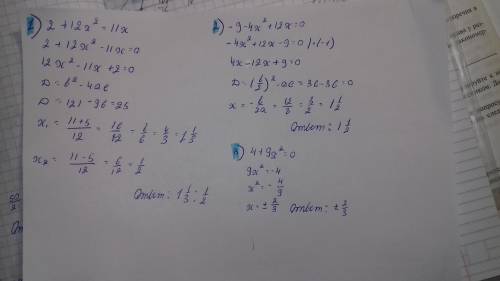 2 + 12x² = 11x
2 + 12x² - 11x = 0
12x² - 11x + 2 = 0
D = b² - 4ac
D = 121 - 96 = 25
x₁ = (11+5)/12 = 16/12 = 8/6 = 4/3 = 1 1/3
x₂ = (11-5)/12 = 6/12 = 1/2
Ответ: 1 1/3; 1/2
-9-4x²+12x=0
-4x²+12x-9=0 /·(-1)
4x-12x+9=0
D=(b/2)²-ac=36-36=0
x=-b/2a=12/8=3/2=1 1/2
Ответ: 1 1/2
4+9x²=0
9x²=-4
x²=-4/9
x=±2/3 Ответ: ±2/3